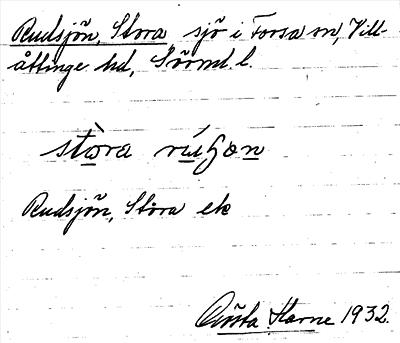 Rudsjön, Stora sjö i Forsa sn, Vill-
åttinge hd, Sörml. l.
stòra rúʒon
Rudsjön, Stora ek
Gösta Karne 1932.